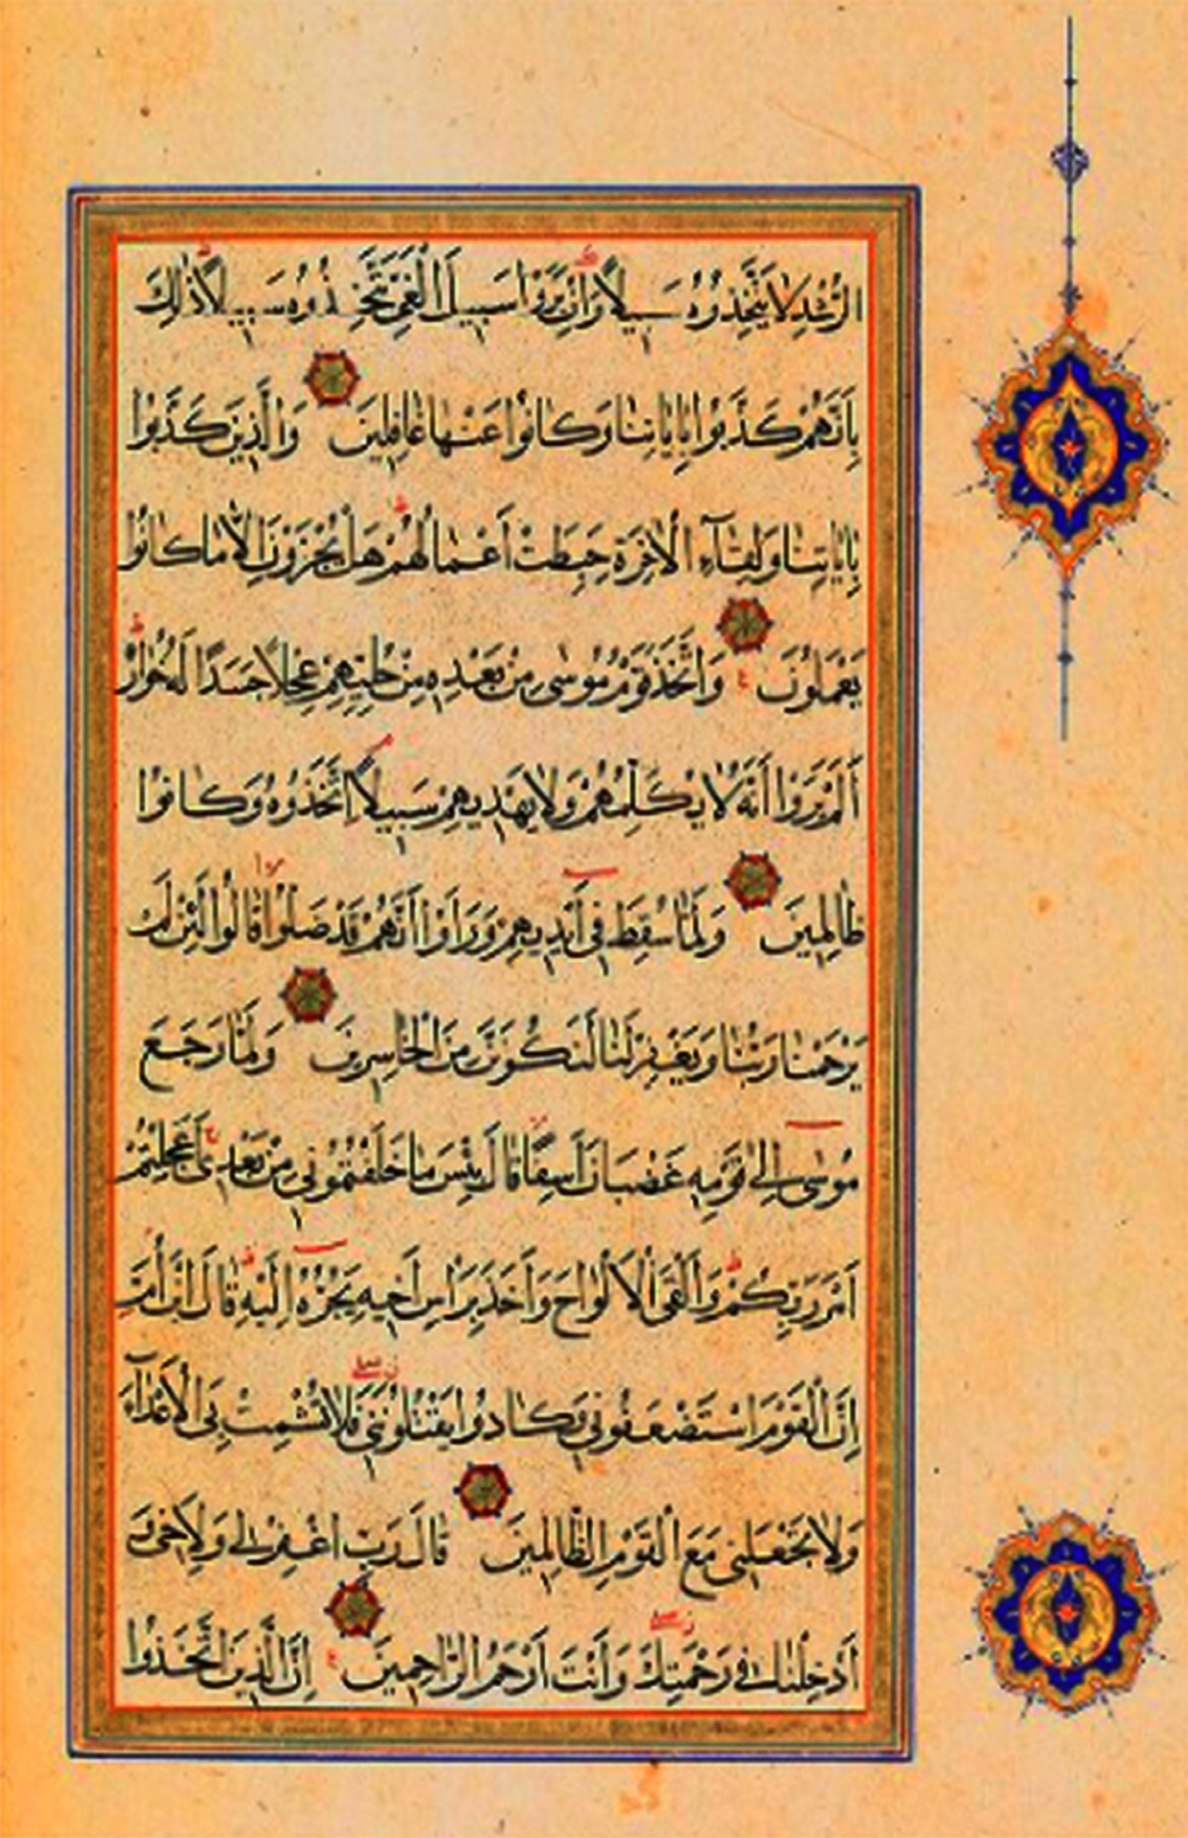 الرُّشْدِ لَا يَتَّخِذُوهُ سَبِيلًا وَإِنْ يَرَوْا سَبِيلَ الْغَيِّ يَتَّخِذُوهُ سَبِيلًا ذَٰلِكَ
بِأَنَّهُمْ كَذَّبُوا بِآيَاتِنَا وَكَانُوا عَنْهَا غَافِلِينَ وَالَّذِينَ كَذَّبُوا
بِآيَاتِنَا وَلِقَاءِ الْآخِرَةِ حَبِطَتْ أَعْمَالُهُمْ هَلْ يُجْزَوْنَ إِلَّا مَا كَانُوا
يَعْمَلُونَ وَاتَّخَذَ قَوْمُ مُوسَىٰ مِنْ بَعْدِهِ مِنْ حُلِيِّهِمْ عِجْلًا جَسَدًا لَهُ خُوَارٌ
أَلَمْ يَرَوْا أَنَّهُ لَا يُكَلِّمُهُمْ وَلَا يَهْدِيهِمْ سَبِيلًا اتَّخَذُوهُ وَكَانُوا
ظَالِمِينَ وَلَمَّا سُقِطَ فِي أَيْدِيهِمْ وَرَأَوْا أَنَّهُمْ قَدْ ضَلُّوا قَالُوا لَئِنْ لَمْ
يَرْحَمْنَا رَبُّنَا وَيَغْفِرْ لَنَا لَنَكُونَنَّ مِنَ الْخَاسِرِينَ وَلَمَّا رَجَعَ
مُوسَىٰ إِلَىٰ قَوْمِهِ غَضْبَانَ أَسِفًا قَالَ بِئْسَ مَا خَلَفْتُمُونِي مِنْ بَعْدِي أَعَجِلْتُمْ
أَمْرَ رَبِّكُمْ وَأَلْقَى الْأَلْوَاحَ وَأَخَذَ بِرَأْسِ أَخِيهِ يَجُرُّهُ إِلَيْهِ قَالَ ابْنَ أُمَّ
إِنَّ الْقَوْمَ اسْتَضْعَفُونِي وَكَادُوا يَقْتُلُونَنِي فَلَا تُشْمِتْ بِيَ الْأَعْدَاءَ
وَلَا تَجْعَلْنِي مَعَ الْقَوْمِ الظَّالِمِينَ قَالَ رَبِّ اغْفِرْ لِي وَلِأَخِي وَ
أَدْخِلْنَا فِي رَحْمَتِكَ وَأَنْتَ أَرْحَمُ الرَّاحِمِينَ إِنَّ الَّذِينَ اتَّخَذُوا